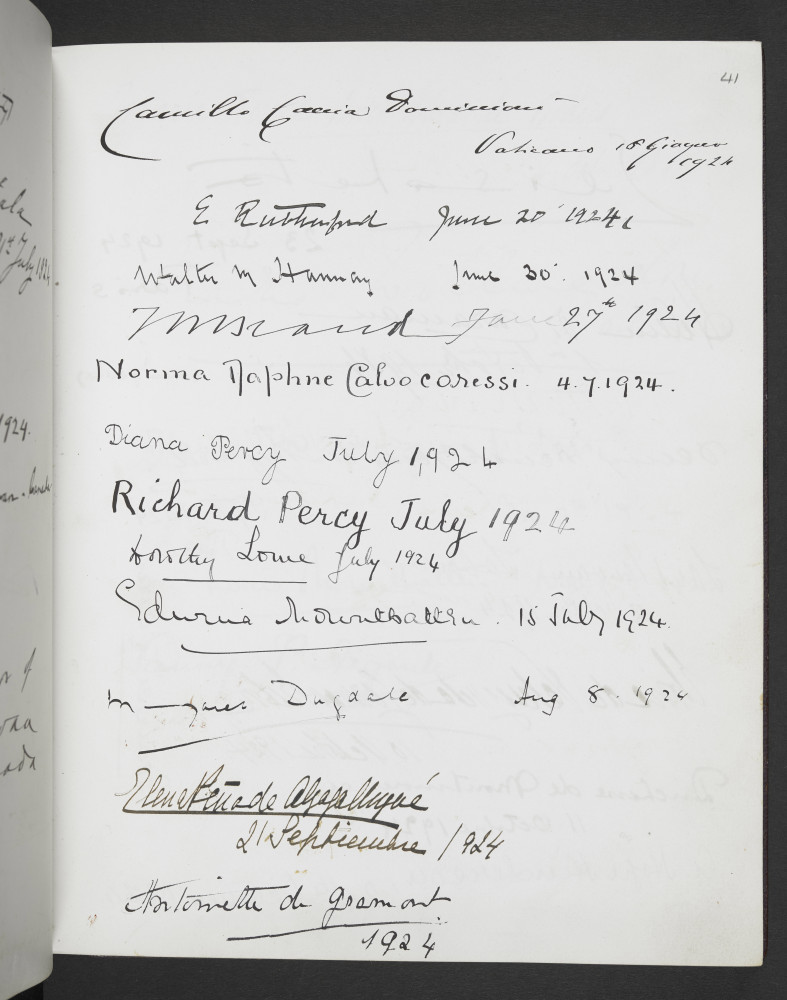 41
Camillo Caccia Dominioni
Vaticano 18 Giugno
1924
E Rutherford June 20 1924
Walter M Hannay June 30. 1924
June 27th 1924
Norma Daphne Calvocoressi. 4.7.1924.
Diana Percy July 1924
Richard Percy July 1924
Dorothy Lowe July 1924
Edwina Mountbatten. 15 July 1924.
Dugdale Aug 8. 1924
Elena Peña de
21 Septiembre / 924
Antoinette de Gramont
1924
1924.